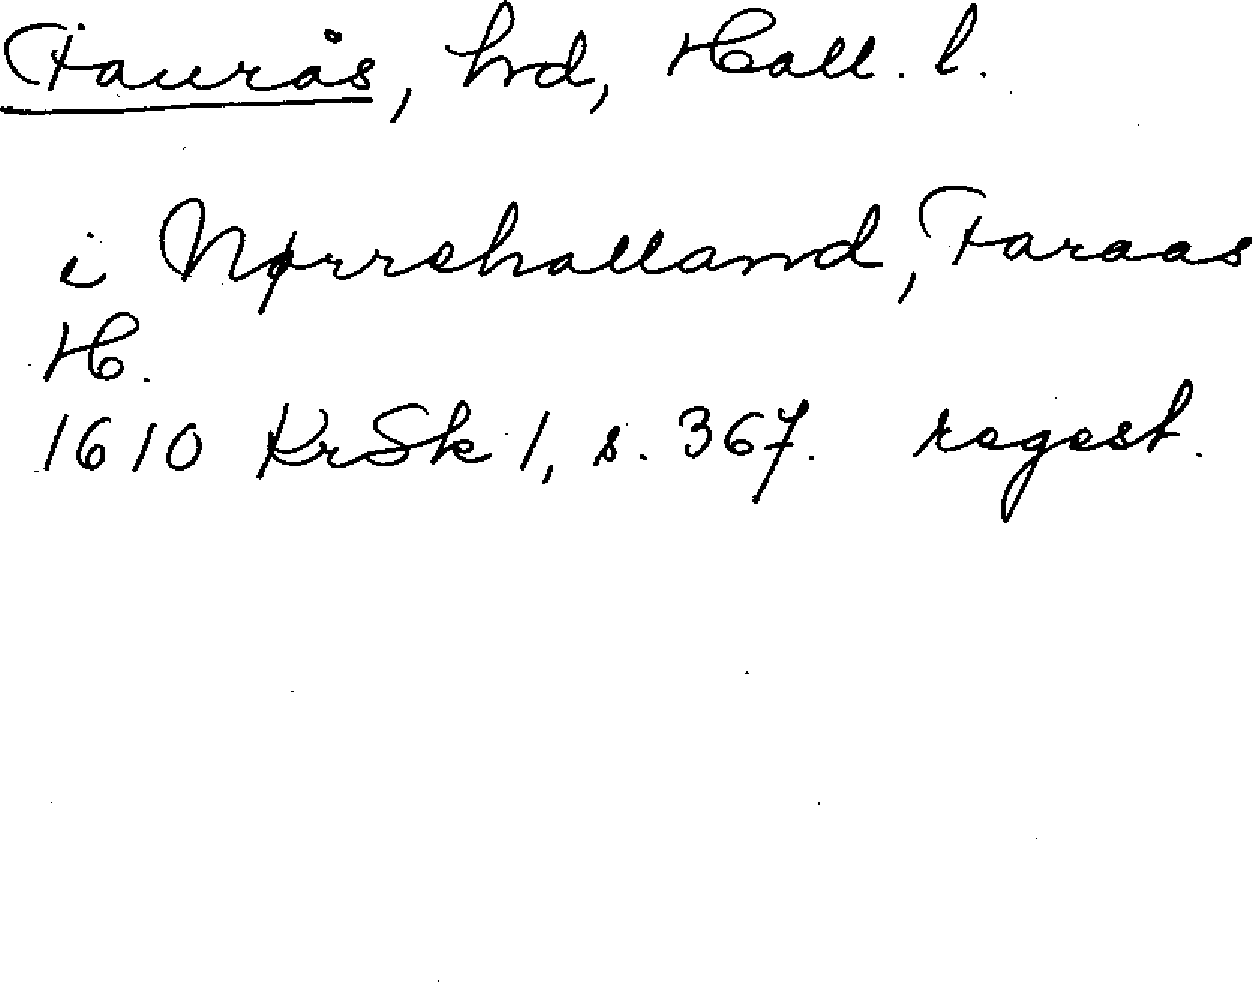 Faurås, hrd, Hall. l.
i Nørrehalland, Faraas
H.
1610 KrSk 1, s. 367. regest.